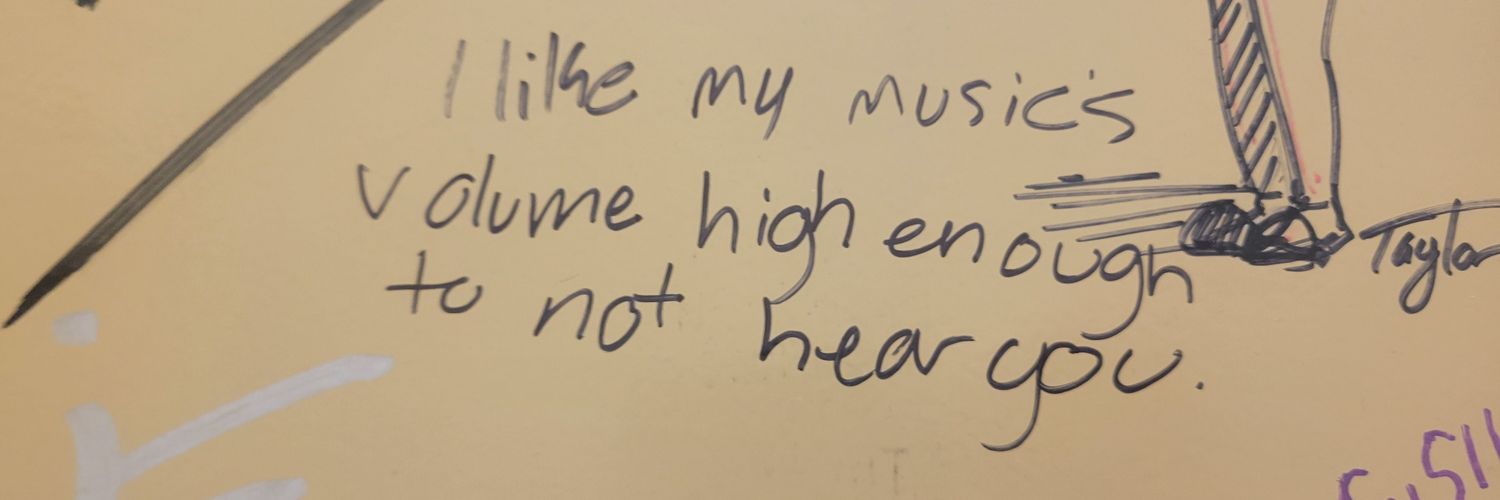 I like my music's
volume high enough
to not hear you.
Taylor